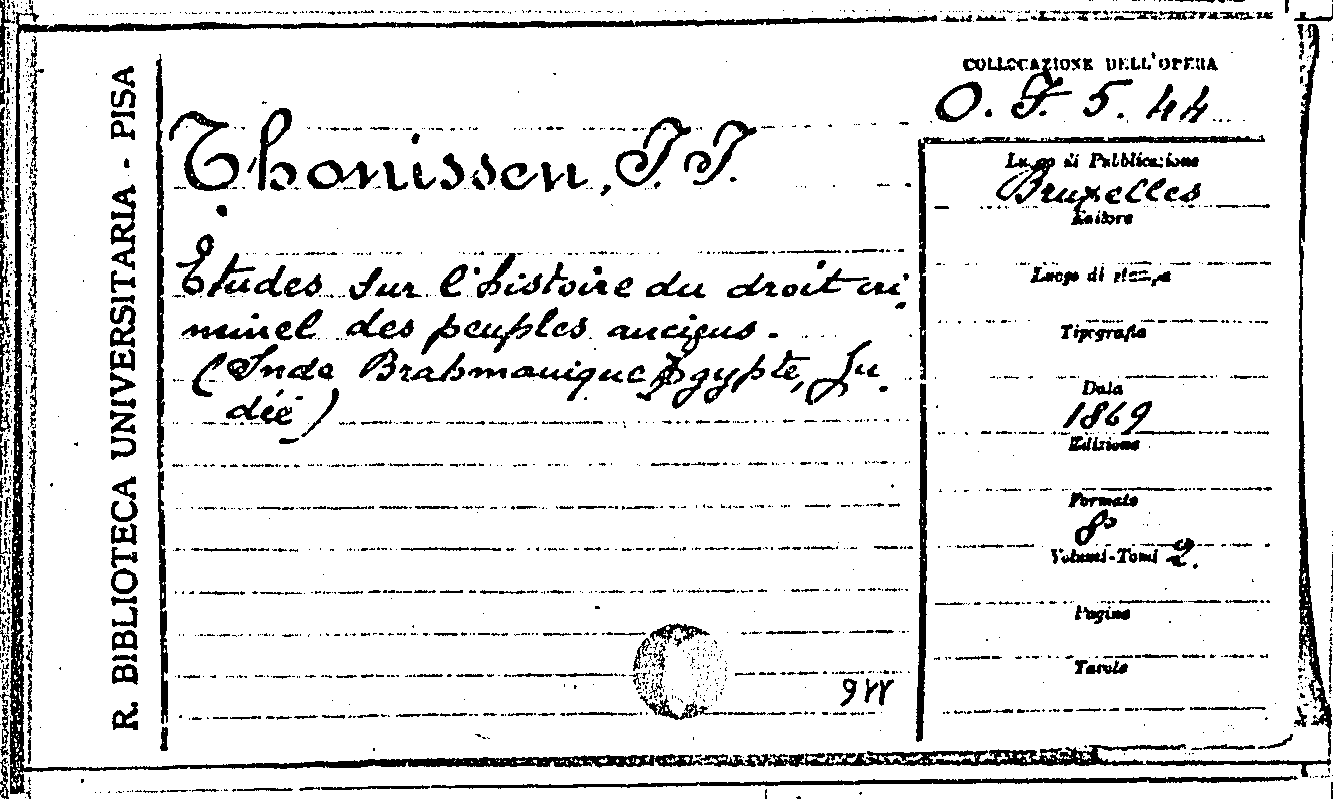 R. BIBLIOTECA UNIVERSITARIA - PISA
COLLOCAZIONE DELL'OPERA
O. F. 5. 44
Thonissen, J. J.
Etudes sur l'histoire du droit cri-
minel des peuples anciens.
(Inde Brahmanique, Egypte, Ju-
dée)
Luogo di Pubblicazione
Bruxelles
Editore
Luogo di stampa
Tipografia
Data
1869
Edizione
Formato
8°
Volumi-Tomi 2.
Pagine
Tavole